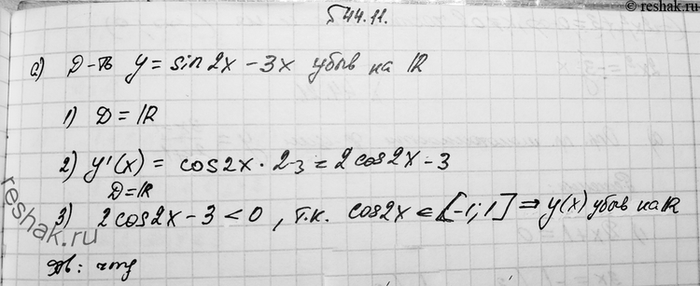 © reshak.ru
§44.11.
а) Д-ть y = sin2x - 3x убыв на ℝ
1) D = ℝ
2) y'(x) = cos2x · 2-3 = 2cos2x - 3
D = ℝ
3) 2cos2x - 3 < 0, т.к. cos2x ∈ [-1; 1] ⇒ y(x) убыв на ℝ
reshak.ru
чтд